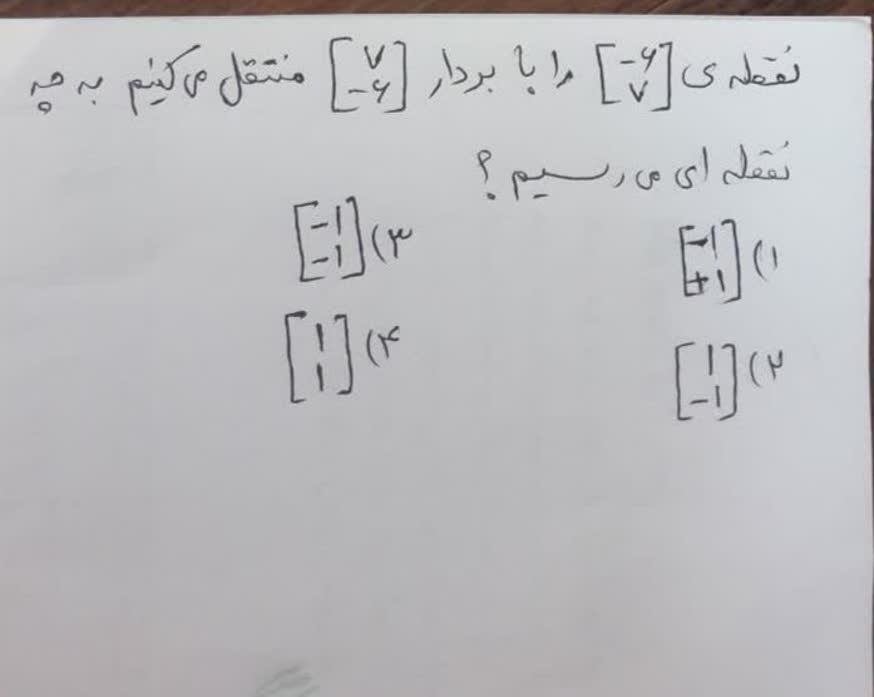 نقطه ی [-۶ ۷] را با بردار [۷ -۶] منتقل می کنیم به چه
نقطه ای می رسیم ؟
۱) [-۱ +۱] ۳) [-۱ -۱]
۲) [۱ -۱] ۴) [۱ ۱]